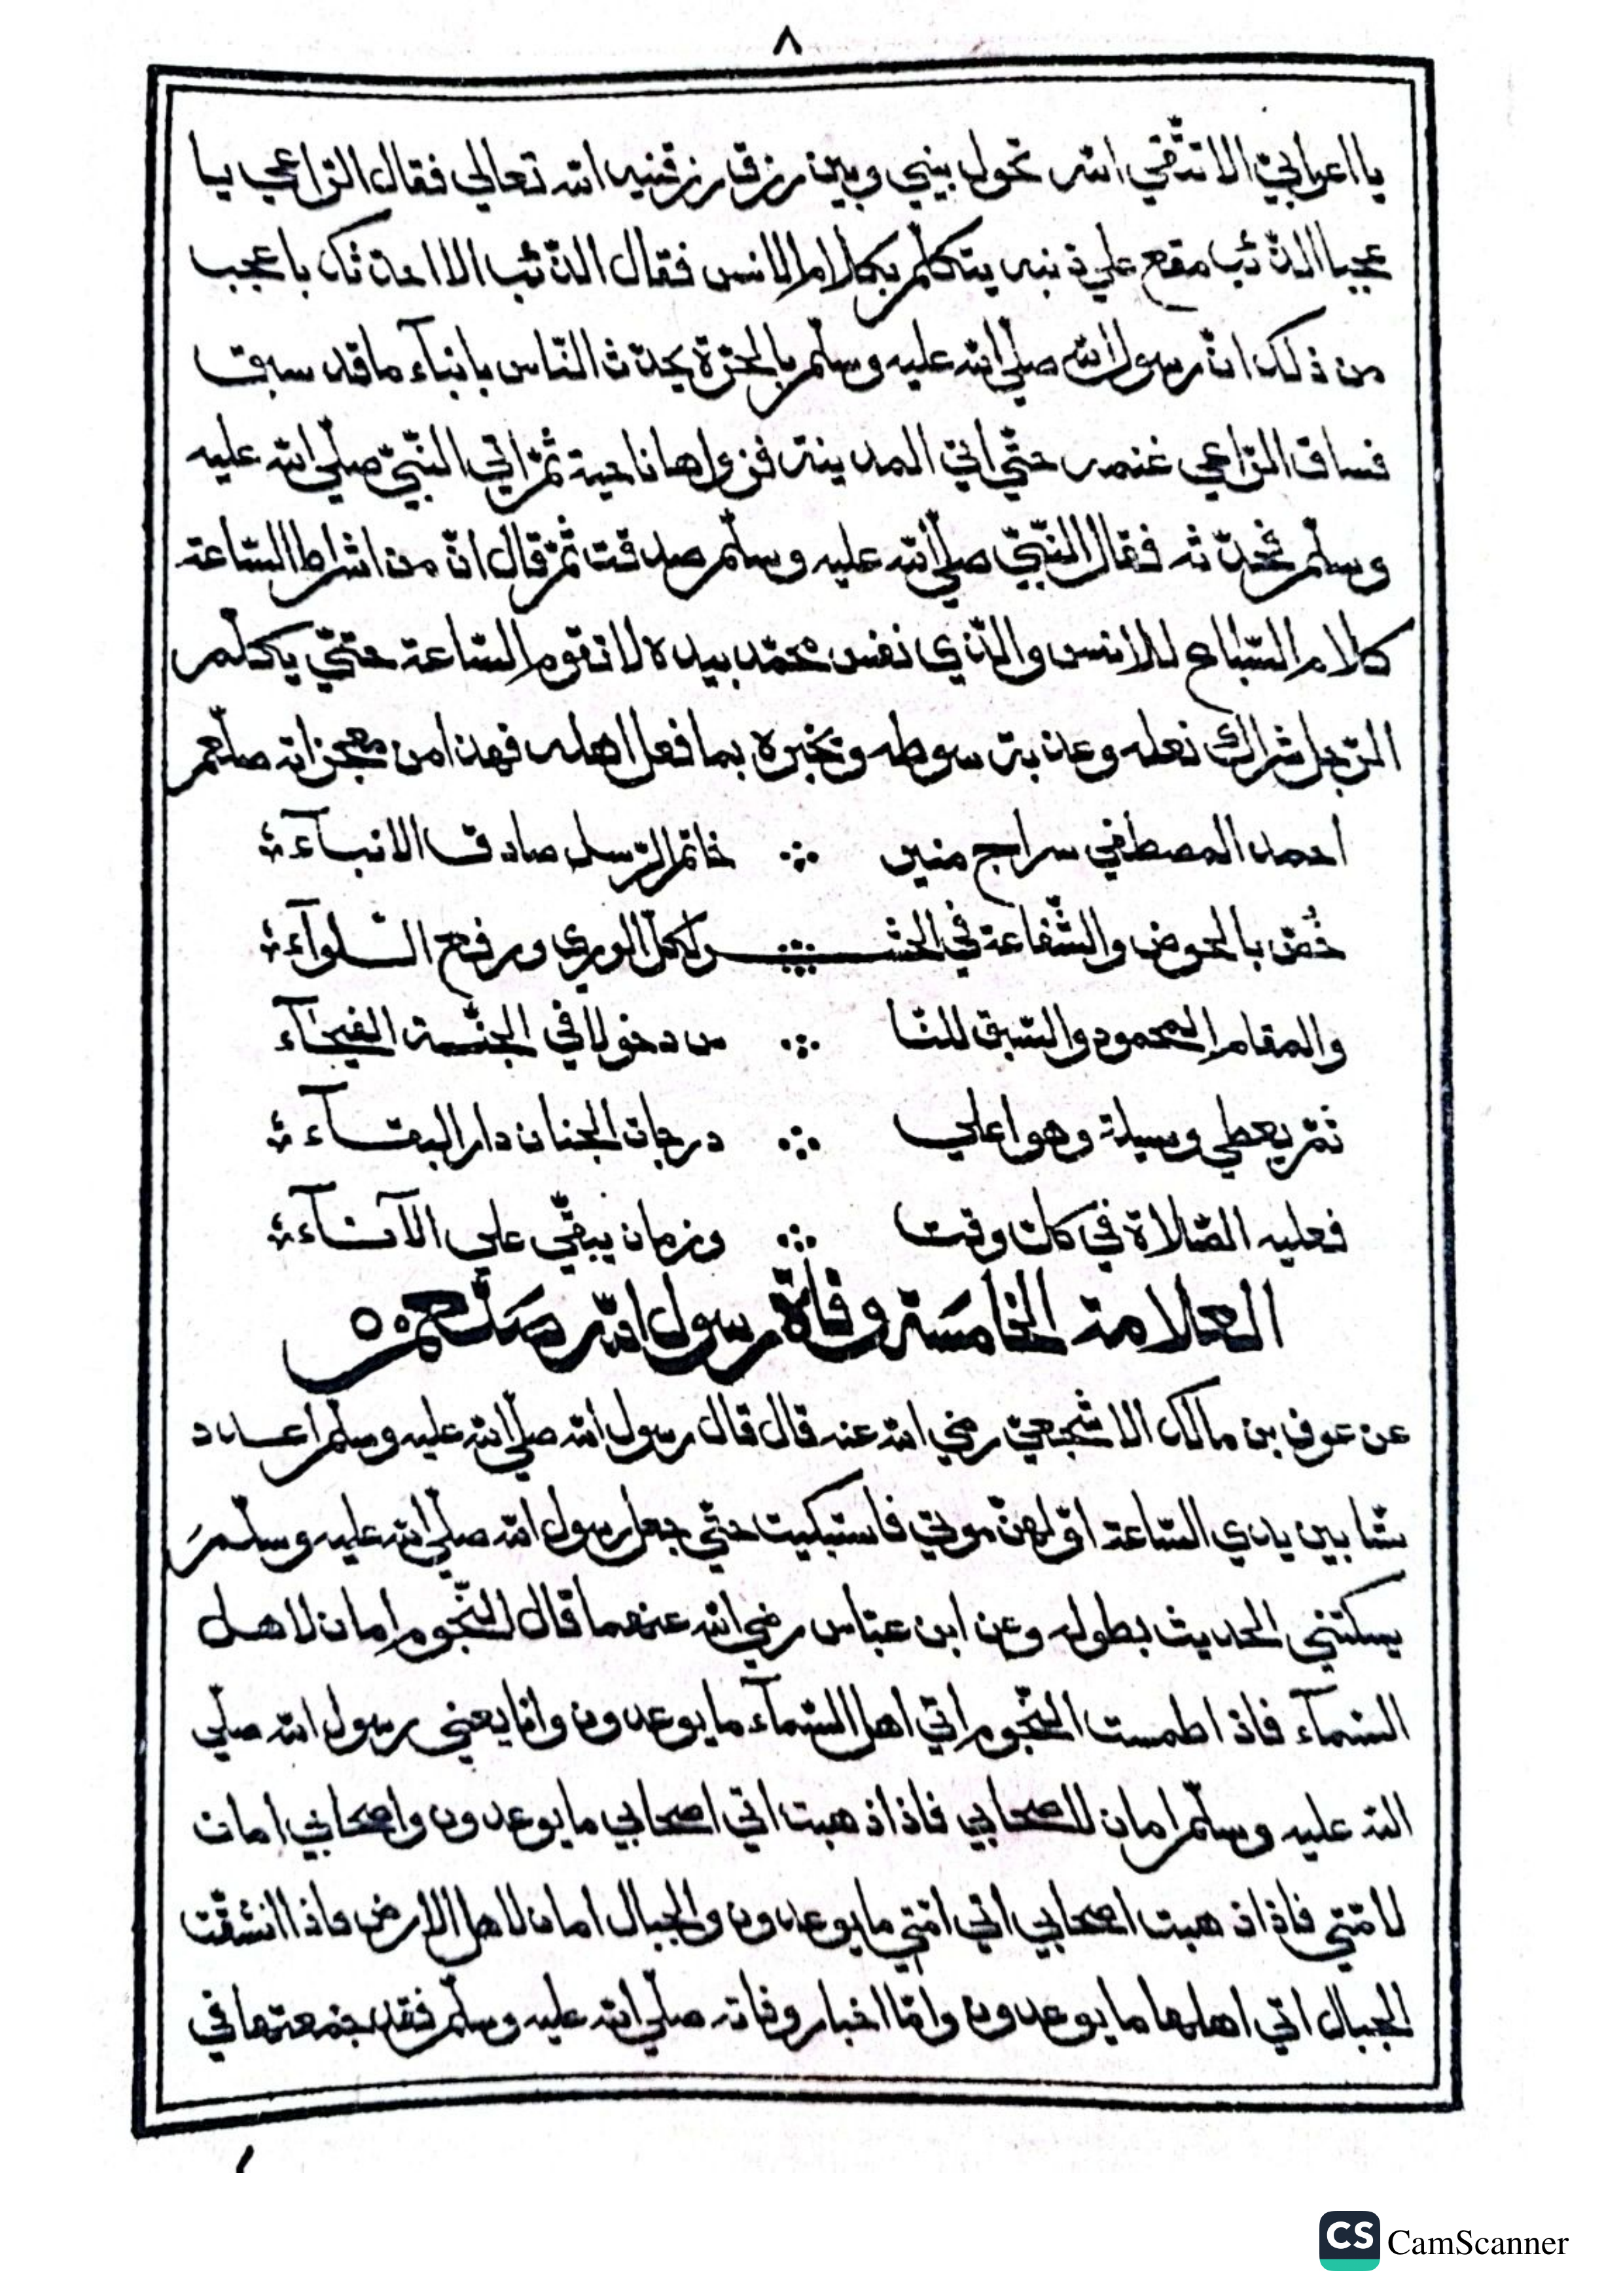 ٨
يا اعرابيّ الا تتّقي الله تحول بيني وبين رزق رزقنيه الله تعالي فقال الرّاعي يا
عجبا الذّئب مقع علي ذنبه يتكلّم بكلام الانس فقال الذّئب الا احدّثك باعجب
من ذلك انّ رسول الله صلّي الله عليه وسلّم بالحرّة يحدّث النّاس بانبآء ما قد سبق
فساق الرّاعي غنمه حتّي اتي المدينة فزواها ناحية ثمّ اتي النّبيّ صلّي الله عليه
وسلّم فحدّثه فقال النّبيّ صلّي الله عليه وسلّم صدقت ثمّ قال انّ من اشراط السّاعة
كلام السّباع للانس والّذي نفس محمّد بيده لا تقوم السّاعة حتّي يكلّم
الرّجل شراك نعله وعذبة سوطه وتخبره بما فعل اهله فهذا من معجزاته صلّعم
احمد المصطفي سراج منير ∴ خاتم الرّسل صادق الانبآء
خُصّ بالحوض والشّفاعة في الحشـ ∴ ـر لكلّ الوري ورفع اللّوآء
والمقام المحمود والسّبق للنّا ∴ س دخولا في الجنّة الفيحآء
ثمّ يعطي وسيلة وهو اعلي ∴ درجات الجنان دار البقآء
فعليه الصّلاة في كلّ وقت ∴ وزمان يبقّي علي الآنآء
العلامة الخامسة وفاة رسول الله صلّعم ٥٠
عن عوف بن مالك الاشجعيّ رضي الله عنه قال قال رسول الله صلّي الله عليه وسلّم اعدد
ستّا بين يدي السّاعة اوّلهنّ موتي فاستبكيت حتّي جعل رسول الله صلّي الله عليه وسلّم
يسكتني الحديث بطوله وعن ابن عبّاس رضي الله عنهما قال النّجوم امان لاهل
السّمآء فاذا طمست النّجوم اتي اهل السّمآء ما يوعدون وانا يعني رسول الله صلّي
الله عليه وسلّم امان للصحابي فاذا ذهبت اتي اصحابي ما يوعدون واصحابي امان
لامّتي فاذا ذهبت اصحابي اتي امّتي ما يوعدون والجبال امان لاهل الارض فاذا انشقّت
الجبال اتي اهلها ما يوعدون وامّا اخبار وفاته صلّي الله عليه وسلّم فقد جمعتها في
CS CamScanner